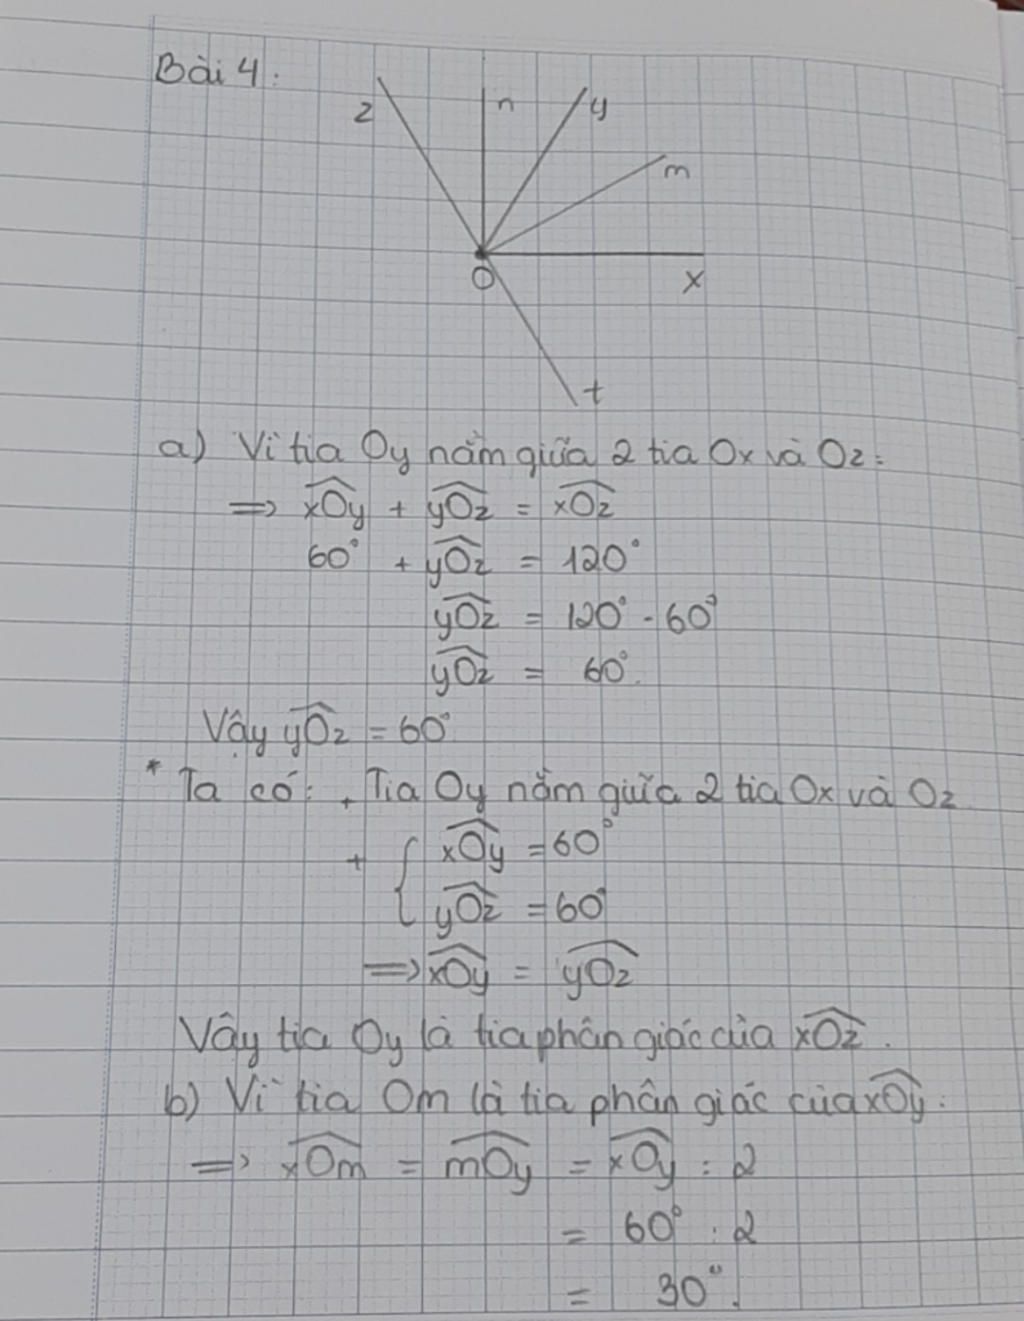 Bài 4:
z n y m
O x
t
a) Vì tia Oy nằm giữa 2 tia Ox và Oz:
=> xOy + yOz = xOz
60° + yOz = 120°
yOz = 120° - 60°
yOz = 60°.
Vậy yOz = 60°
* Ta có: + Tia Oy nằm giữa 2 tia Ox và Oz
+ { xOy = 60°
yOz = 60°
=> xOy = yOz
Vậy tia Oy là tia phân giác của xOz.
b) Vì tia Om là tia phân giác của xOy:
=> xOm = mOy = xOy : 2
= 60° : 2
= 30°.